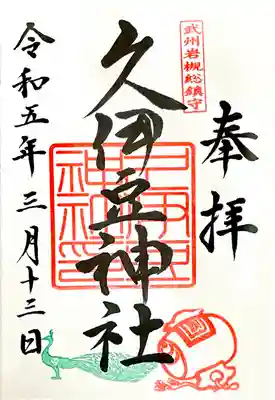 奉拝
武州岩槻総鎮守
久伊豆神社
令和五年三月十三日